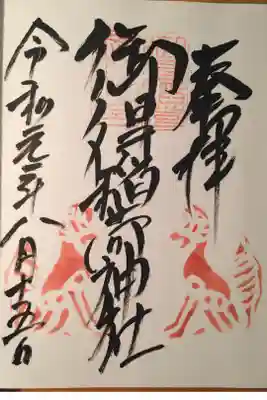 奉拝
稲荷神社
令和元年八月十五日